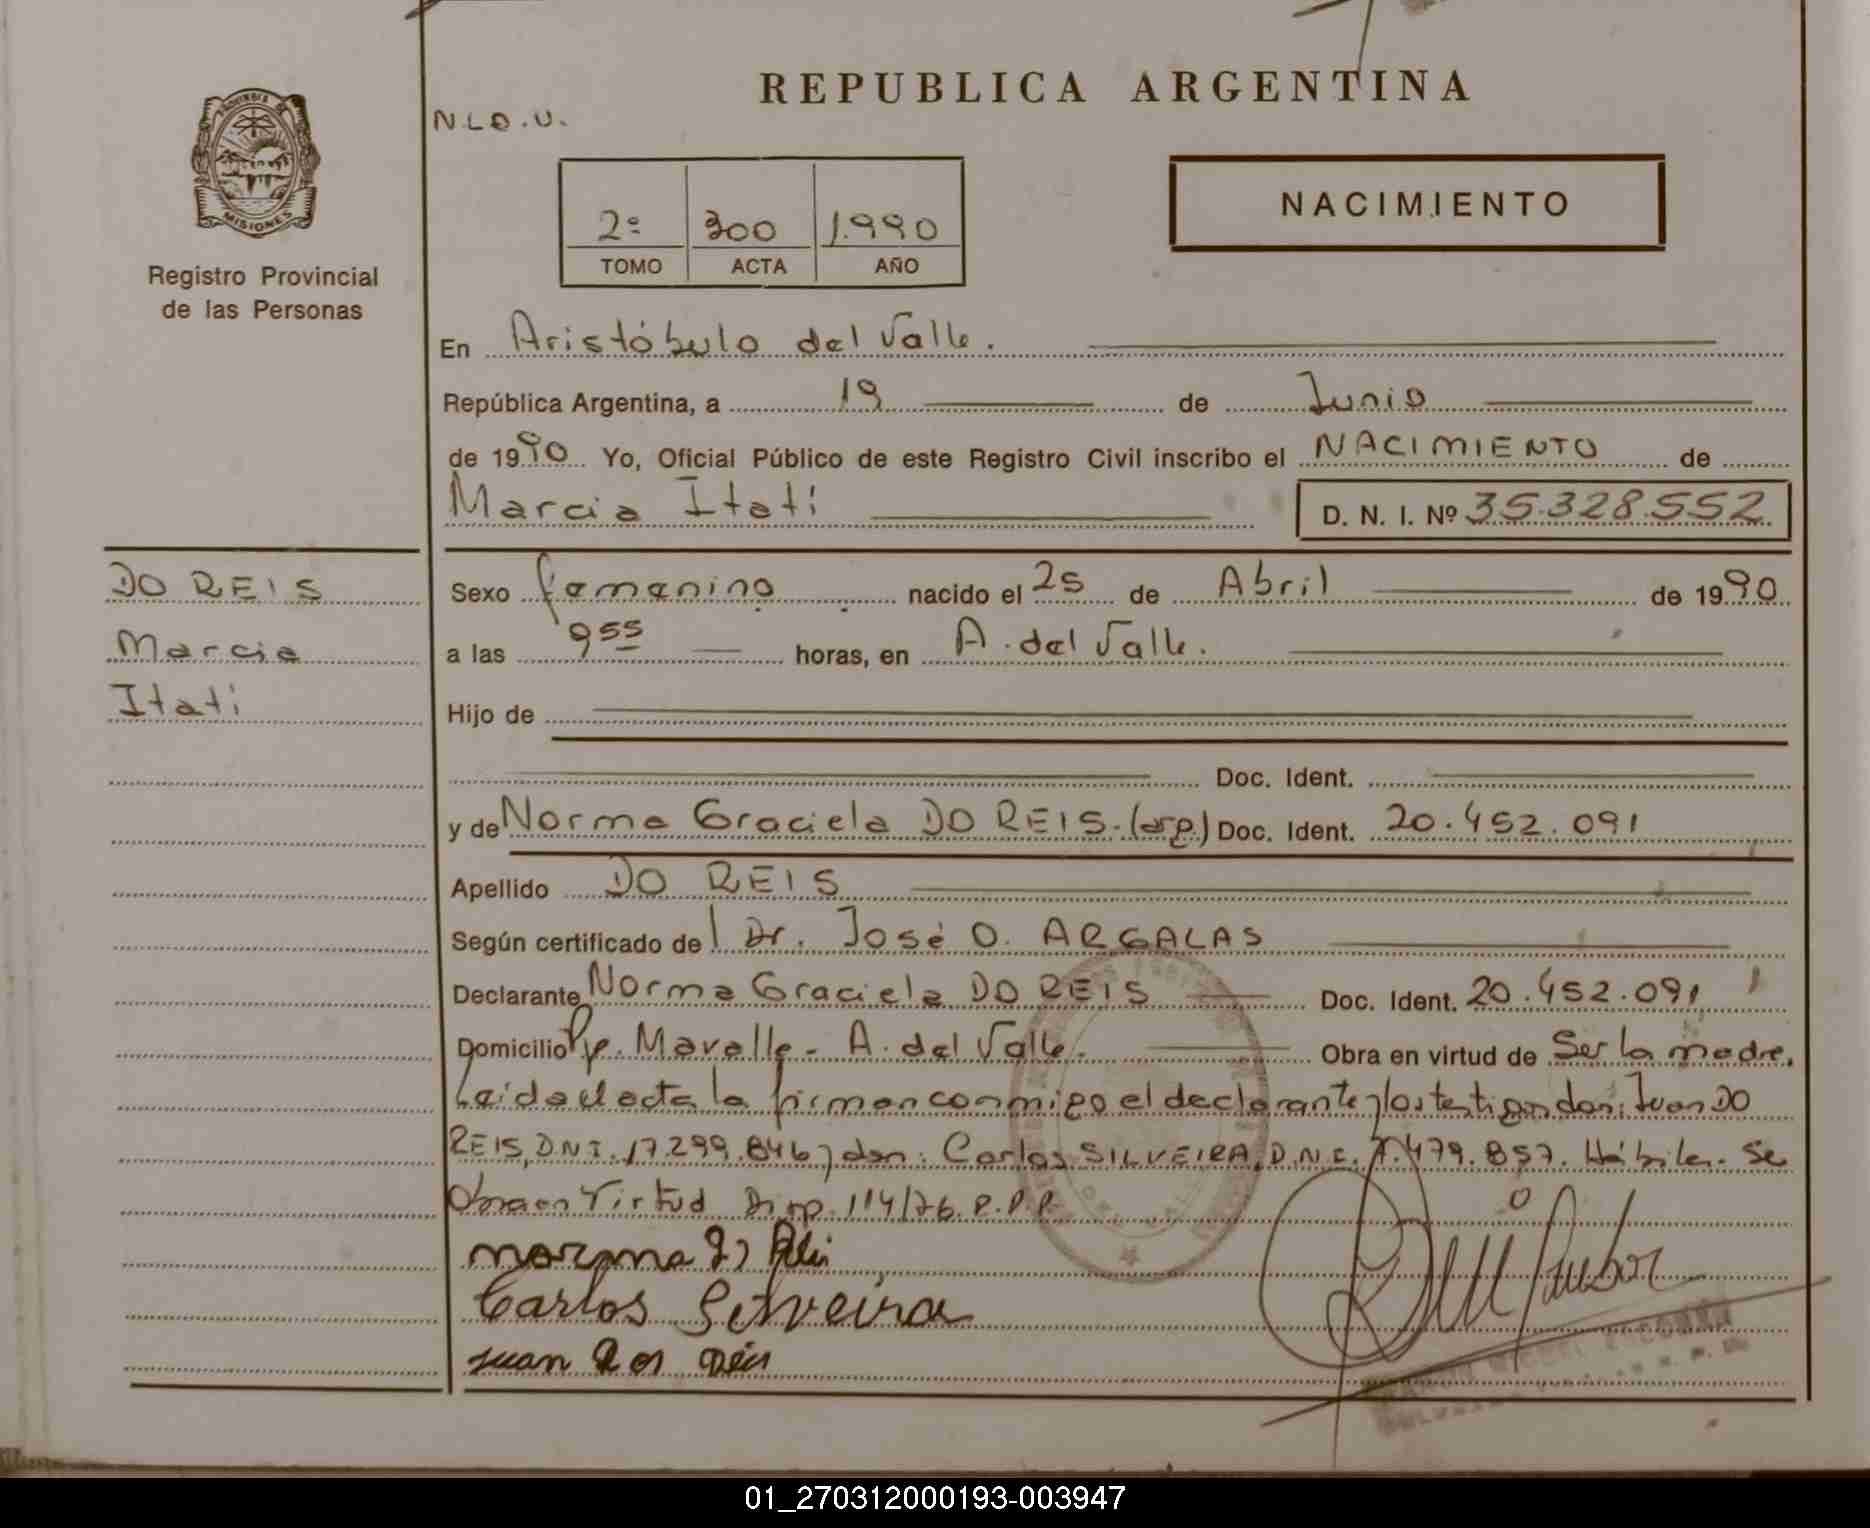 REPUBLICA ARGENTINA
N.L.O.U.
MISIONES
Registro Provincial
de las Personas
2º 300 1.990
TOMO ACTA AÑO
NACIMIENTO
En Aristóbulo del Valle.
República Argentina, a 19 de Junio
de 1990 Yo, Oficial Público de este Registro Civil inscribo el NACIMIENTO de
Marcia Itatí D. N. I. Nº 35.328.552
DO REIS
Marcia
Itatí
Sexo femenino nacido el 25 de Abril de 1990
a las 9 55 horas, en A. del Valle.
Hijo de
Doc. Ident.
y de Norma Graciela DO REIS. (arg.) Doc. Ident. 20.452.091
Apellido DO REIS
Según certificado de l Dr. José O. ARGALAS
Declarante Norma Graciela DO REIS Doc. Ident. 20.452.091
Domicilio Pje. Mavalle - A. del Valle. Obra en virtud de Ser la madre.
Leida el acta la firman conmigo el declarante y los testigos don: Juan DO
REIS, D.N.I. 17.299.846 y don: Carlos SILVEIRA, D.N.I. 7.479.857. Hábiles. Se
Obra en Virtud Disp. 114/76. R.P.P.
Carlos Silveira
Juan
01_270312000193-003947